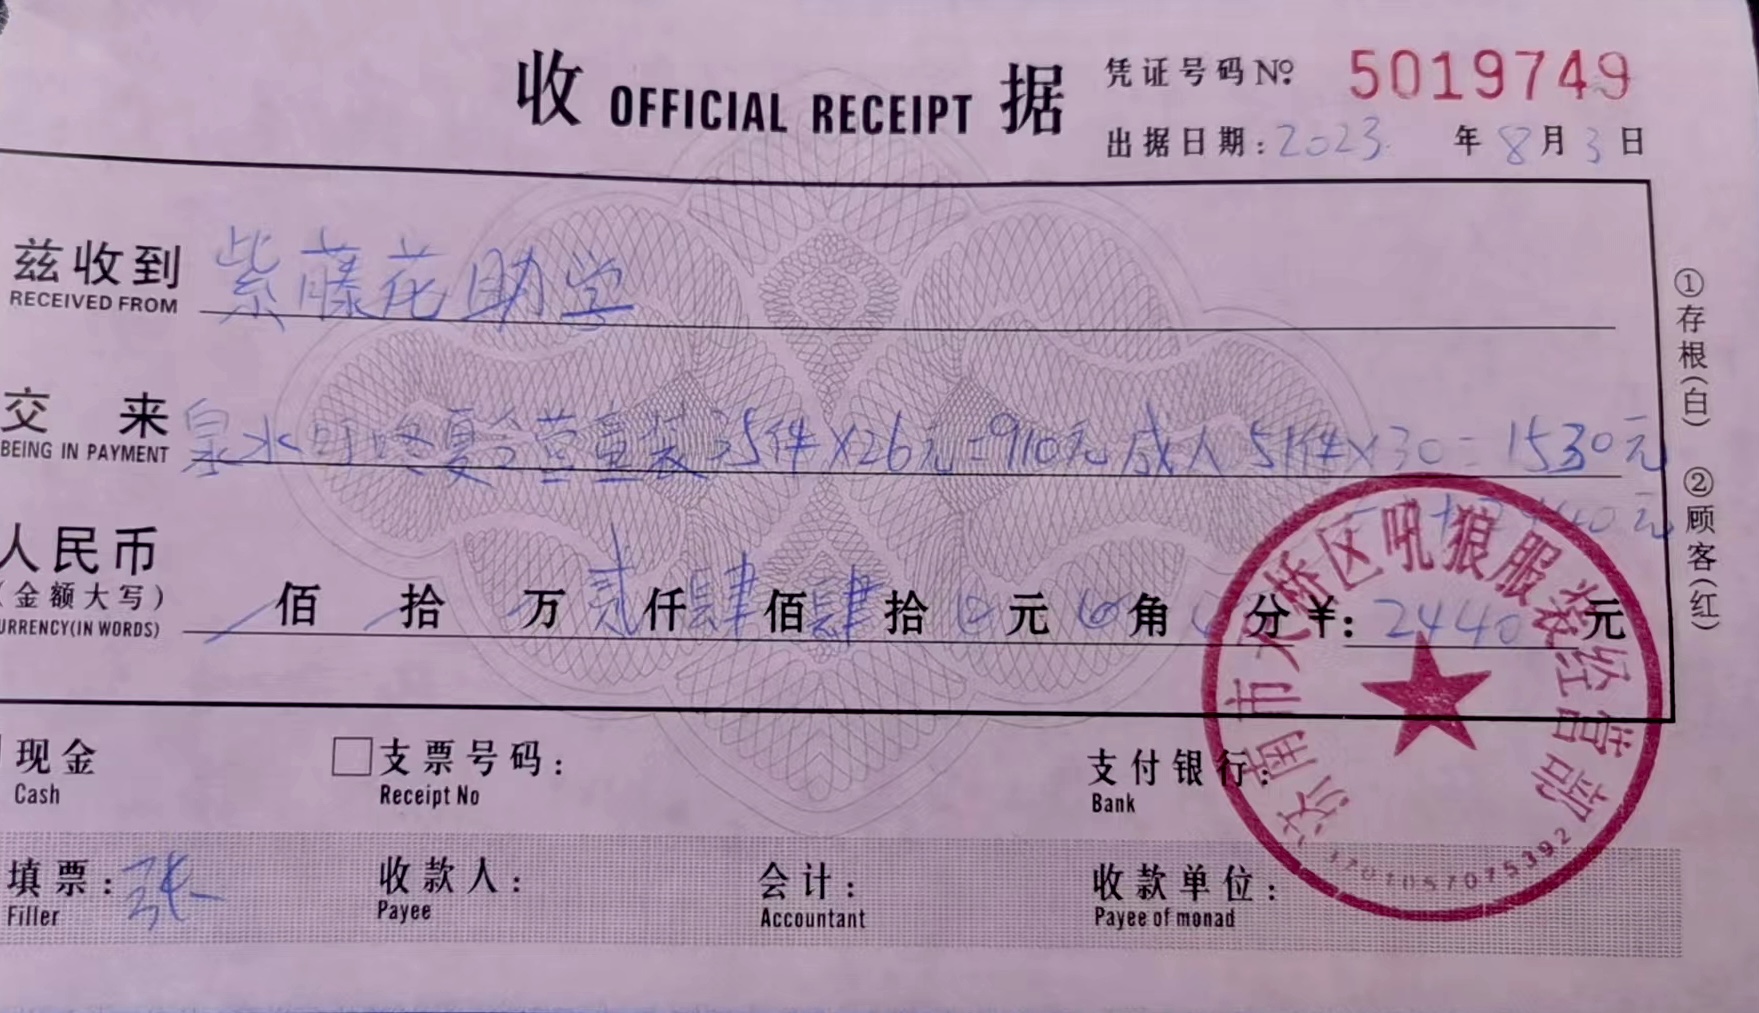 收 OFFICIAL RECEIPT 据
凭证号码 No 5019749
出据日期:2023 年 8 月 3 日
兹收到 紫藤花助学
RECEIVED FROM
交 来 泉水叮咚夏令营童装35件×26元=910元 成人51件×30=1530元
BEING IN PAYMENT
2440元
人民币
(金额大写)
佰 拾 万 贰 仟 肆 佰 肆 拾 0 元 0 角 0 分 ¥: 2440 元
URRENCY(IN WORDS)
①存根(白) ②顾客(红)
济南市天桥区吼狼服装经营部
现金
Cash
支票号码:
Receipt No
支付银行:
Bank
填票: 张
Filler
收款人:
Payee
会计:
Accountant
收款单位:
Payee of monad